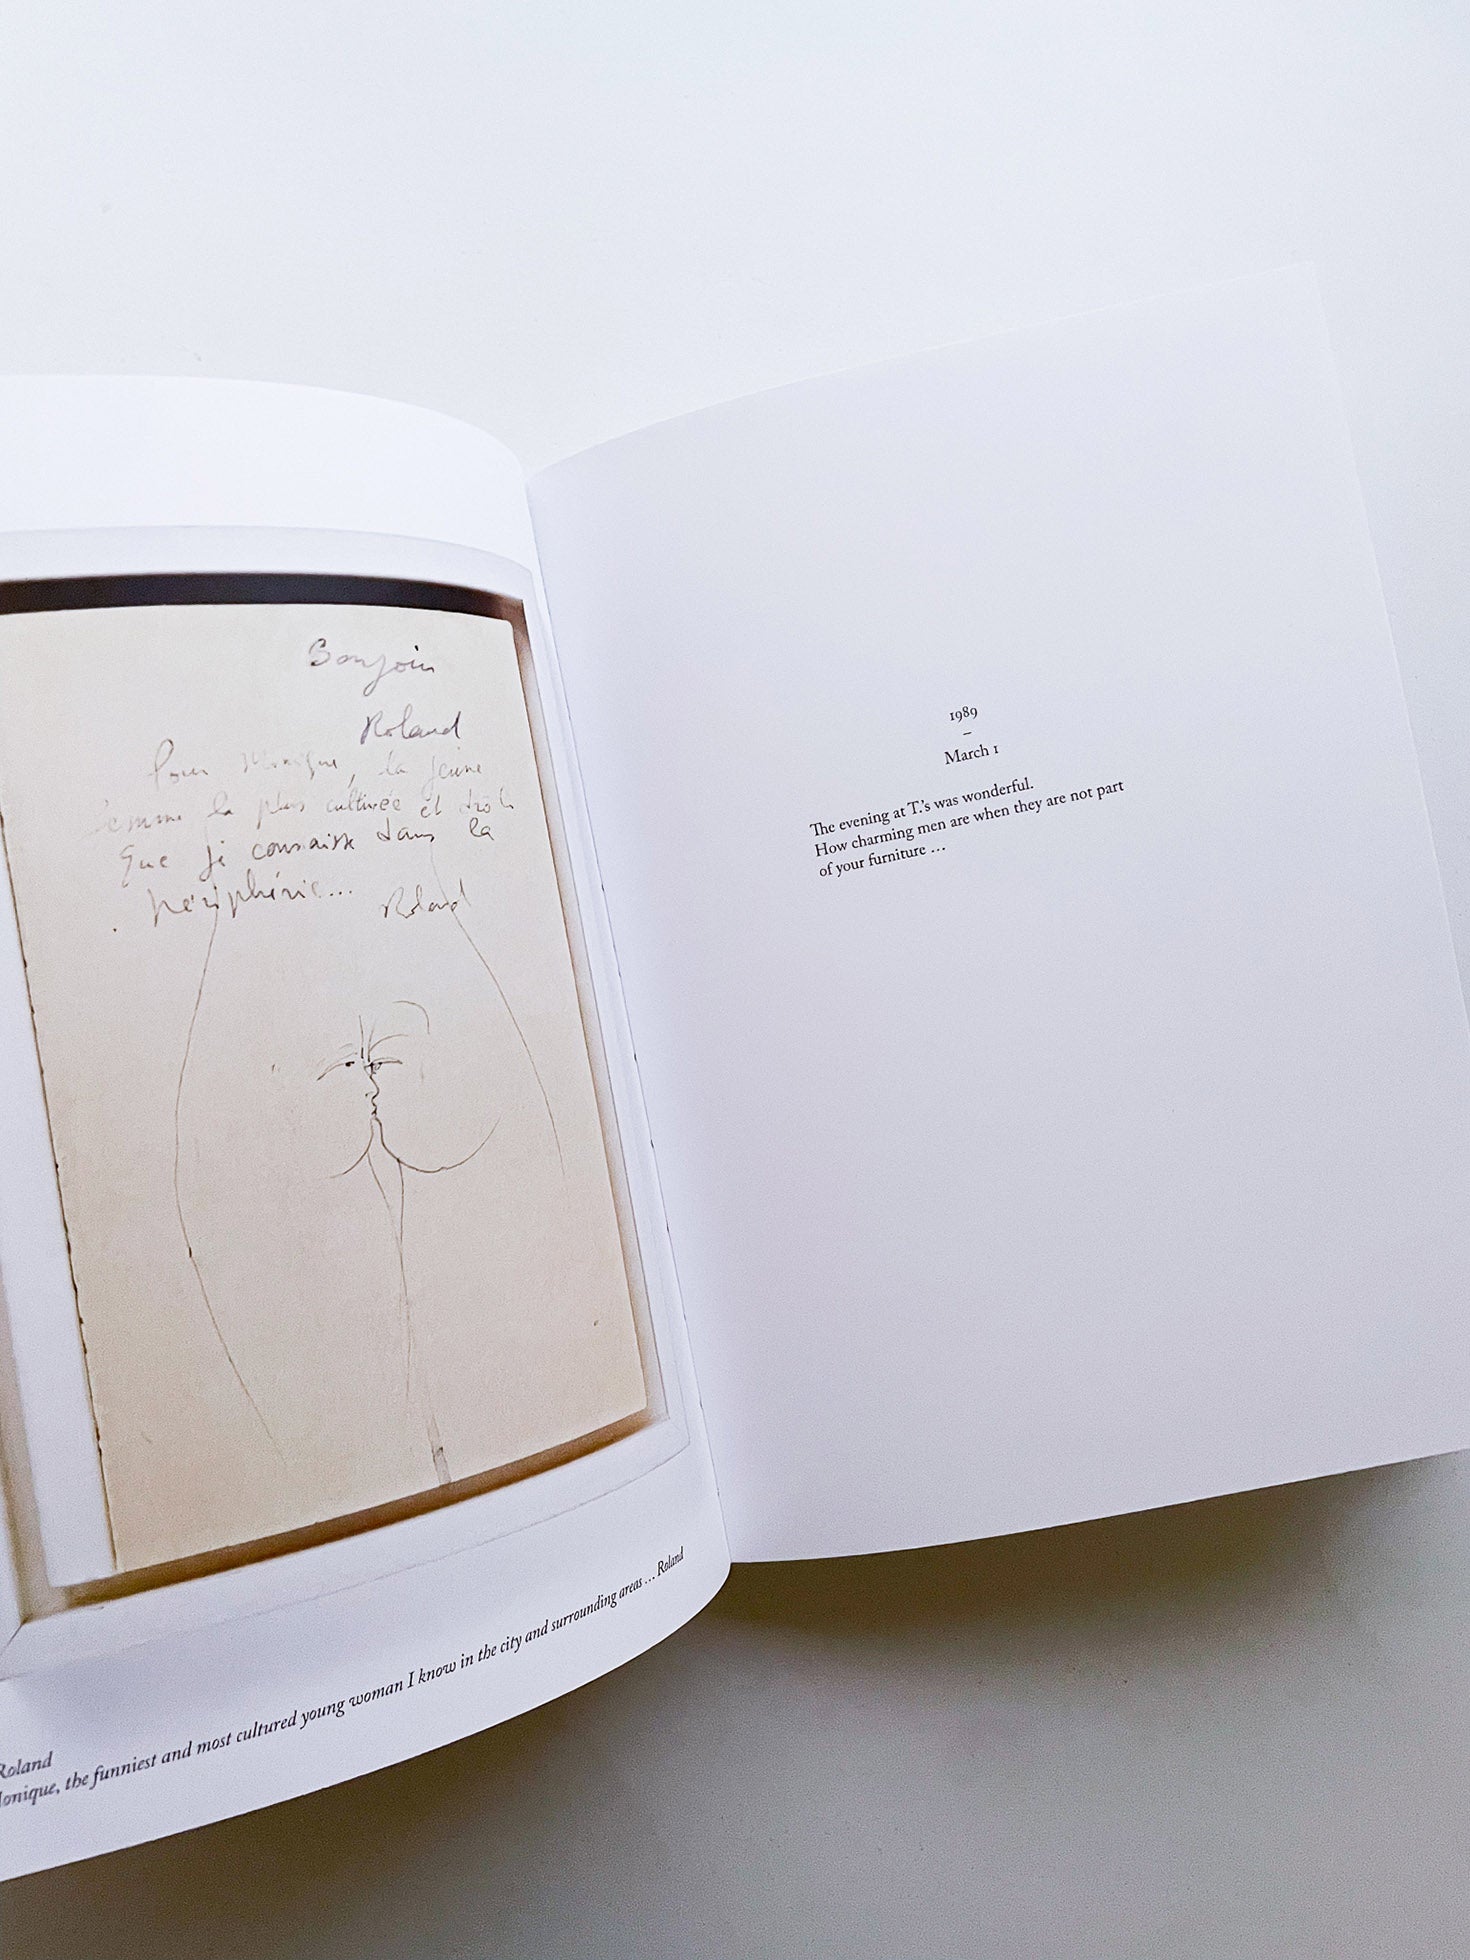 Bonjour
Roland
Pour Monique, la jeune
femme la plus cultivée et drôle
que je connaisse dans la
périphérie...
Roland
Roland
onique, the funniest and most cultured young woman I know in the city and surrounding areas ... Roland
1989
–
March 1
The evening at T.'s was wonderful.
How charming men are when they are not part
of your furniture ...